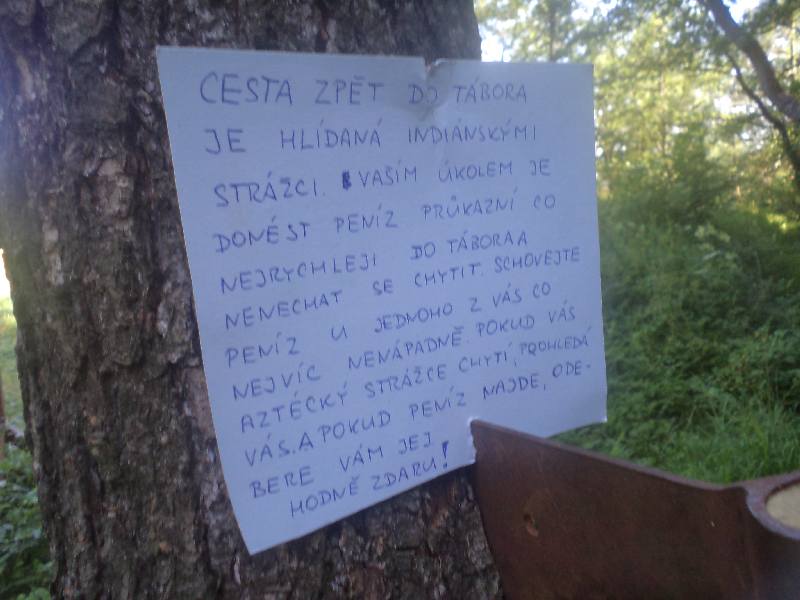 CESTA ZPĚT DO TÁBORA
JE HLÍDANÁ INDIÁNSKÝMI
STRÁŽCI. VAŠÍM ÚKOLEM JE
DONÉST PENÍZ PRŮKAZNÍ CO
NEJRYCHLEJI DO TÁBORA A
NENECHAT SE CHYTIT. SCHOVEJTE
PENÍZ U JEDNOHO Z VÁS CO
NEJVÍC NENÁPADNĚ. POKUD VÁS
AZTÉCKÝ STRÁŽCE CHYTÍ, PROHLEDÁ
VÁS. A POKUD PENÍZ NAJDE, ODE-
BERE VÁM JEJ
HODNĚ ZDARU!